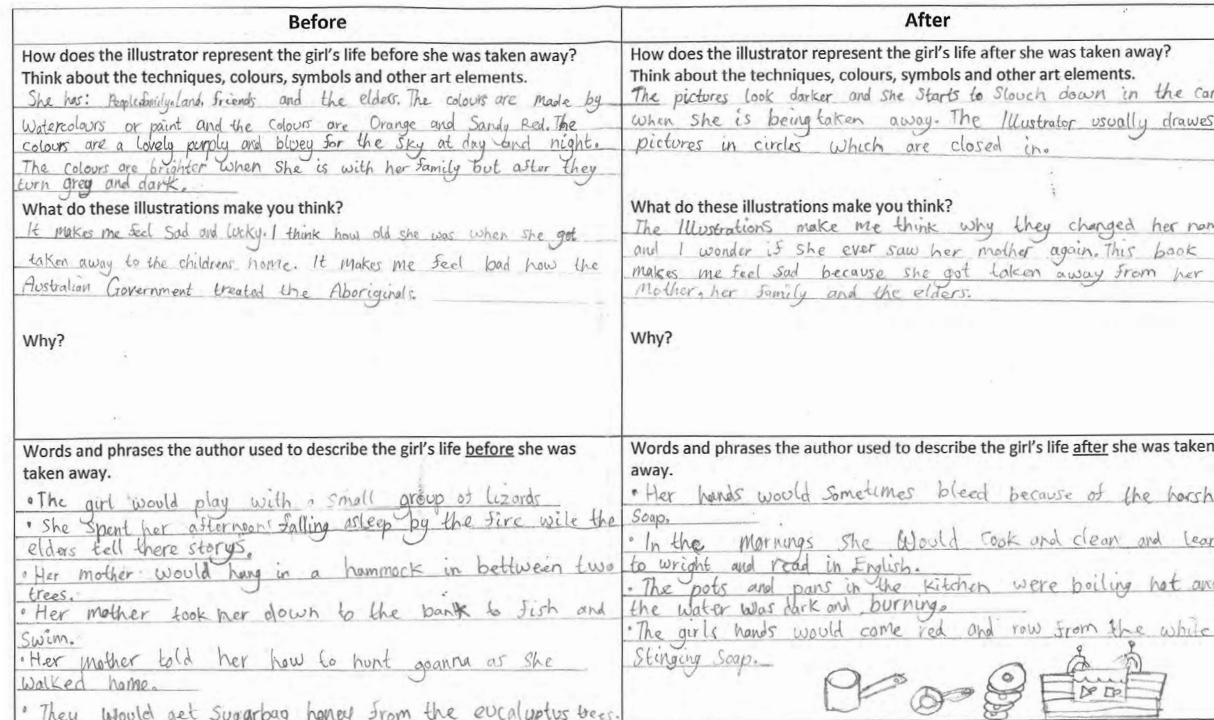 Before
How does the illustrator represent the girl's life before she was taken away?
Think about the techniques, colours, symbols and other art elements.
She has: People, family, land, friends and the elders. The colours are made by
Watercolours or paint and the colours are Orange and Sandy Red. The
colours are a lovely purply and bluey for the sky at day and night.
The colours are brighter when She is with her family but after they
turn grey and dark.
What do these illustrations make you think?
It makes me feel Sad and lucky. I think how old she was when she got
taken away to the childrens home. It makes me feel bad how the
Australian Government treated the Aboriginals.
Why?
Words and phrases the author used to describe the girl's life before she was
taken away.
• The girl would play with a small group of lizards
• She spent her afternoons falling asleep by the fire wile the
elders tell there storys.
• Her mother would hang in a hammock in bettween two
trees.
• Her mother took her down to the bank to fish and
Swim.
• Her mother told her how to hunt goanna as She
walked home.
• They would get Sugarbag honey from the eucalyptus trees.
After
How does the illustrator represent the girl's life after she was taken away?
Think about the techniques, colours, symbols and other art elements.
The pictures look darker and she Starts to Slouch down in the Car
when She is being taken away. The Illustrator usually drawes
pictures in circles which are closed in.
What do these illustrations make you think?
The Illustrations make me think why they changed her nam
and I wonder if she ever saw her mother again. This book
makes me feel sad because she got taken away from her
Mother, her family and the elders.
Why?
Words and phrases the author used to describe the girl's life after she was taken
away.
• Her hands would Sometimes bleed because of the harsh
Soap.
• In the mornings she Would cook and clean and lear
to wright and read in English.
• The pots and pans in the kitchen were boiling hot an
the water was dark and burning.
• The girls hands would come red and row from the white
Stinging Soap.